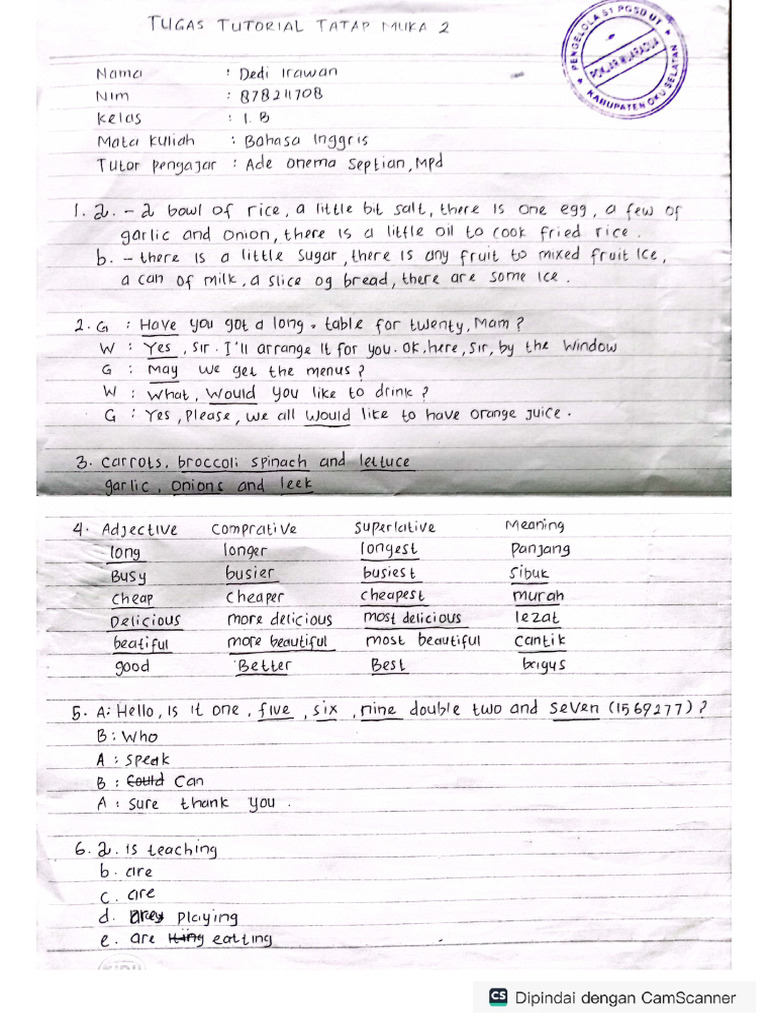 TUGAS TUTORIAL TATAP MUKA 2
PENGELOLA S1 PGSD UT
POKJAR MUARADUA
KABUPATEN OKU SELATAN
Nama : Dedi Irawan
Nim : 878211708
Kelas : 1. B
Mata Kuliah : Bahasa Inggris
Tutor Pengajar : Ade Onema Septian, MPd
1. a. - a bowl of rice, a little bit salt, there is one egg, a few of
garlic and onion, there is a little oil to cook fried rice.
b. - there is a little sugar, there is any fruit to mixed fruit ice,
a can of milk, a slice og bread, there are some ice.
2. G : Have you got a long. table for twenty, Mam?
W : Yes, Sir. I'll arrange it for you. Ok, here, Sir, by the window
G : May we get the menus?
W : What, Would you like to drink?
G : Yes, Please, we all would like to have orange juice.
3. Carrots, broccoli spinach and lettuce
garlic, onions and leek
4. Adjective Comprative Superlative Meaning
long longer longest Panjang
Busy busier busiest Sibuk
Cheap Cheaper cheapest murah
Delicious more delicious most delicious lezat
beatiful more beautiful most beautiful cantik
good Better Best bagus
5. A: Hello, is it one, five, six, nine double two and seven (1569277)?
B : Who
A : speak
B : Could Can
A : Sure thank you.
6. a. is teaching
b. are
c. are
d. are playing
e. are eatting
CS Dipindai dengan CamScanner